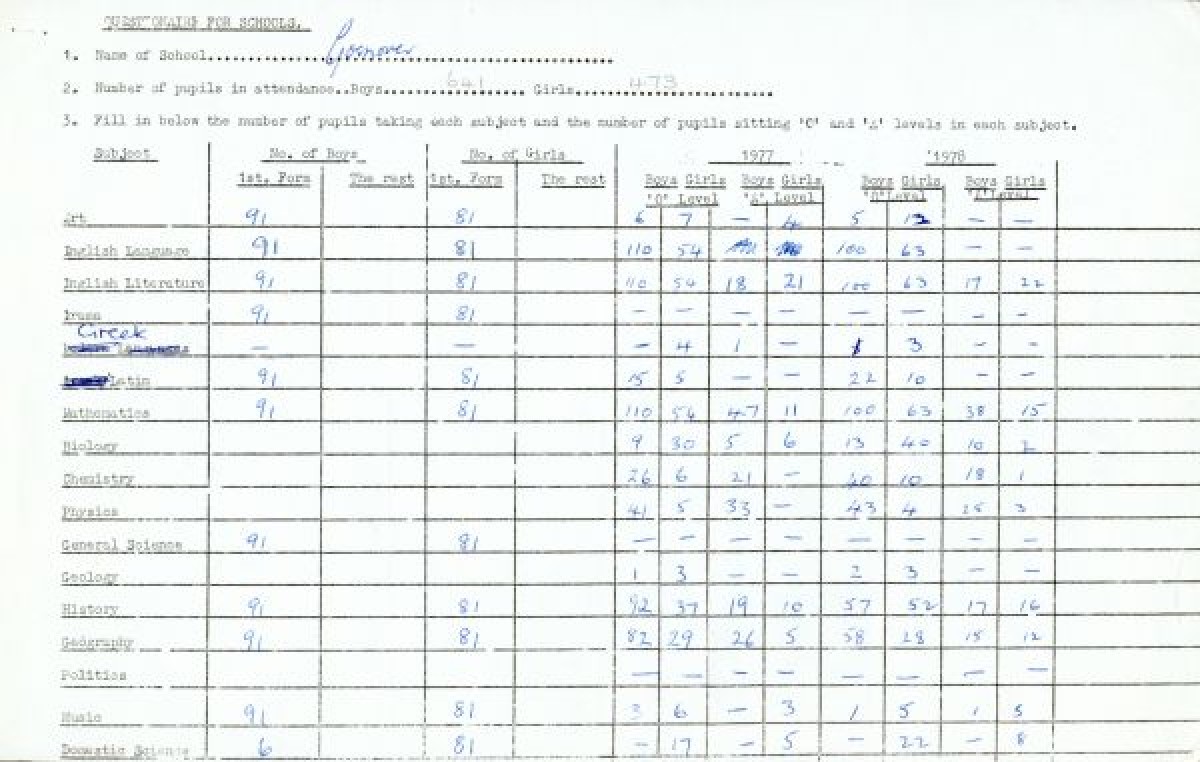 QUESTIONAIRE FOR SCHOOLS.
1. Name of School
2. Number of pupils in attendance..Boys 641 Girls 473
3. Fill in below the number of pupils taking each subject and the number of pupils sitting 'O' and 'A' levels in each subject.
Subject No. of Boys No. of Girls 1977 1978
1st. Form The rest 1st. Form The rest Boys Girls Boys Girls Boys Girls Boys Girls
'O' Level 'A' Level 'O' Level 'A' Level
Art 91 81 6 7 — 4 5 13 — —
English Language 91 81 110 54 100 63 — —
English Literature 91 81 110 54 18 21 100 63 17 22
Drama 91 81 — — — — — — — —
Greek — — — 4 1 — 1 3 — —
Latin 91 81 15 5 — — 22 10 — —
Mathematics 91 81 110 54 47 11 100 63 38 15
Biology 9 30 5 6 13 40 10 2
Chemistry 26 6 21 — 10 18 1
Physics 41 5 33 — 43 4 25 3
General Science 91 81 — — — — — — — —
Geology 1 3 — — 2 3 — —
History 91 81 92 37 19 10 57 52 17 16
Geography 91 81 82 29 26 5 58 28 12
Politics — — — — — — — —
Music 91 81 3 6 — 3 1 5 1 5
Domestic Science 6 81 — 17 — 5 — 22 — 8